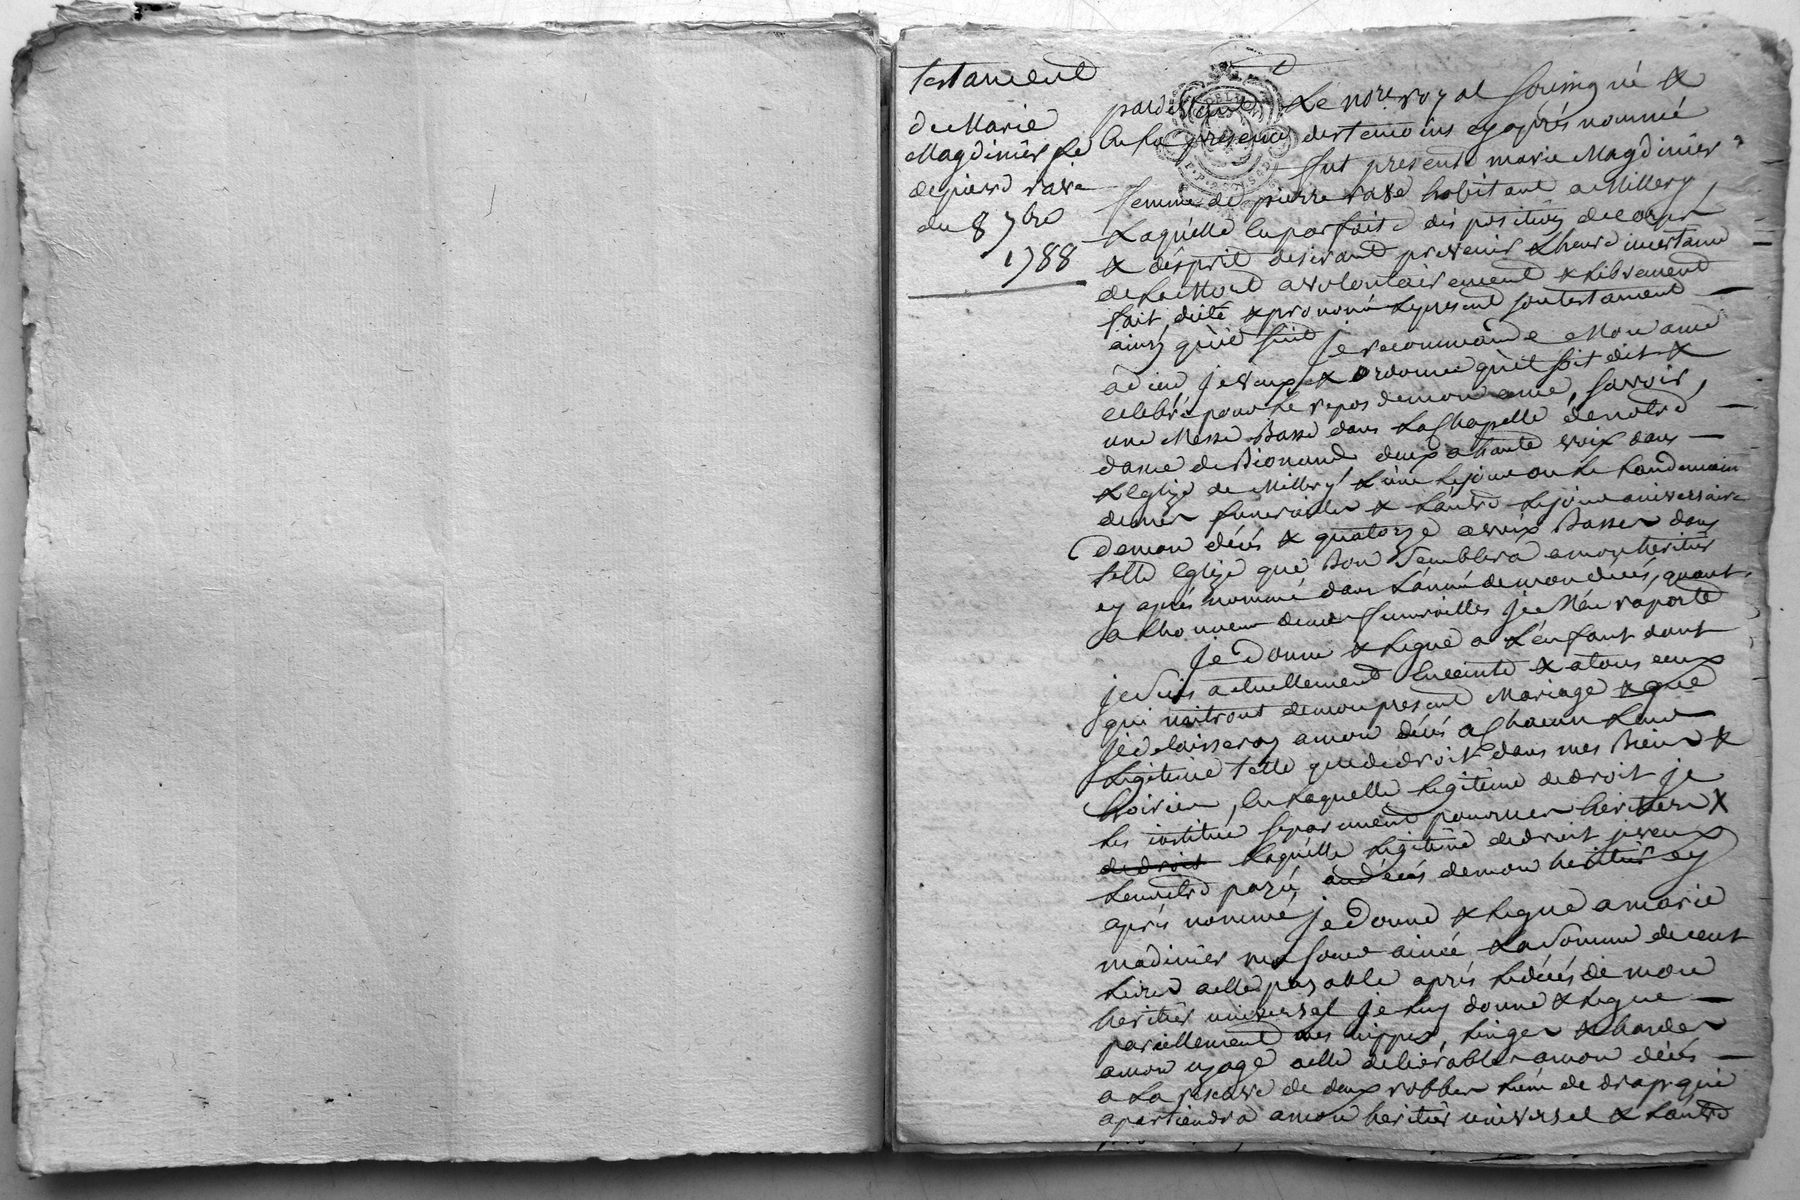 testament
de Marie
Magdinier fe
de pierre rave
du 8 7bre
1788
pardevant Le nore royal soussigné &
En la presence des temoins cy après nommé
fut presente marie Magdinier
femme de pierre rave habitant a Millery
Laquelle en parfaite dispositions de corps
& desprit desirant prevenir Lheure incertaine
de La Mort a volontairement & Librement
fait, dicté & prononcé Le present son testament
ainsy quil suit je recommande Mon ame
à dieu je veux & ordonne quil soit dit &
celebré pour Le repos de mon ame, savoir,
une Messe Basse dans La Chapelle de notre
dame de deux a haute voix dans
Leglize de Millery Lune Le jour ou Le Landemain
de mes funerailles & Lautre Le jour aniversaire
de mon décès & quatorze a voix Basse dans
telle Eglize que Bon Semblera a mon heritier
cy après nommé dans Lannée de mon décès, quant
a Lhonneur de mes funerailles je Men raporte
Je Donne & Legue a Lenfant dont
je Suis actuellement Enceinte & a tous ceux
qui naitront de mon present Mariage & que
je delaisseray a mon décès a Chacun Leur
Legitime telle que de droit dans mes Biens &
hoirie, En Laquelle Legitime de droit je
Les institue separement pour mes heritiers &
de droit Laquelle Legitime de droit je veux
Leur être payé au décès de mon heritier cy
après nommé, je Donne & Legue a marie
madinier ma soeur ainée La Somme de cent
Livres a elle payable après Le décès de mon
heritier universel je Luy donne & Legue
pareillement mes nippes, Linges & hardes
a mon uzage a elle delivrables a mon décès
a La reserve de deux robbes Lune de drap qui
apartiendra a mon heritier universel & Lautre